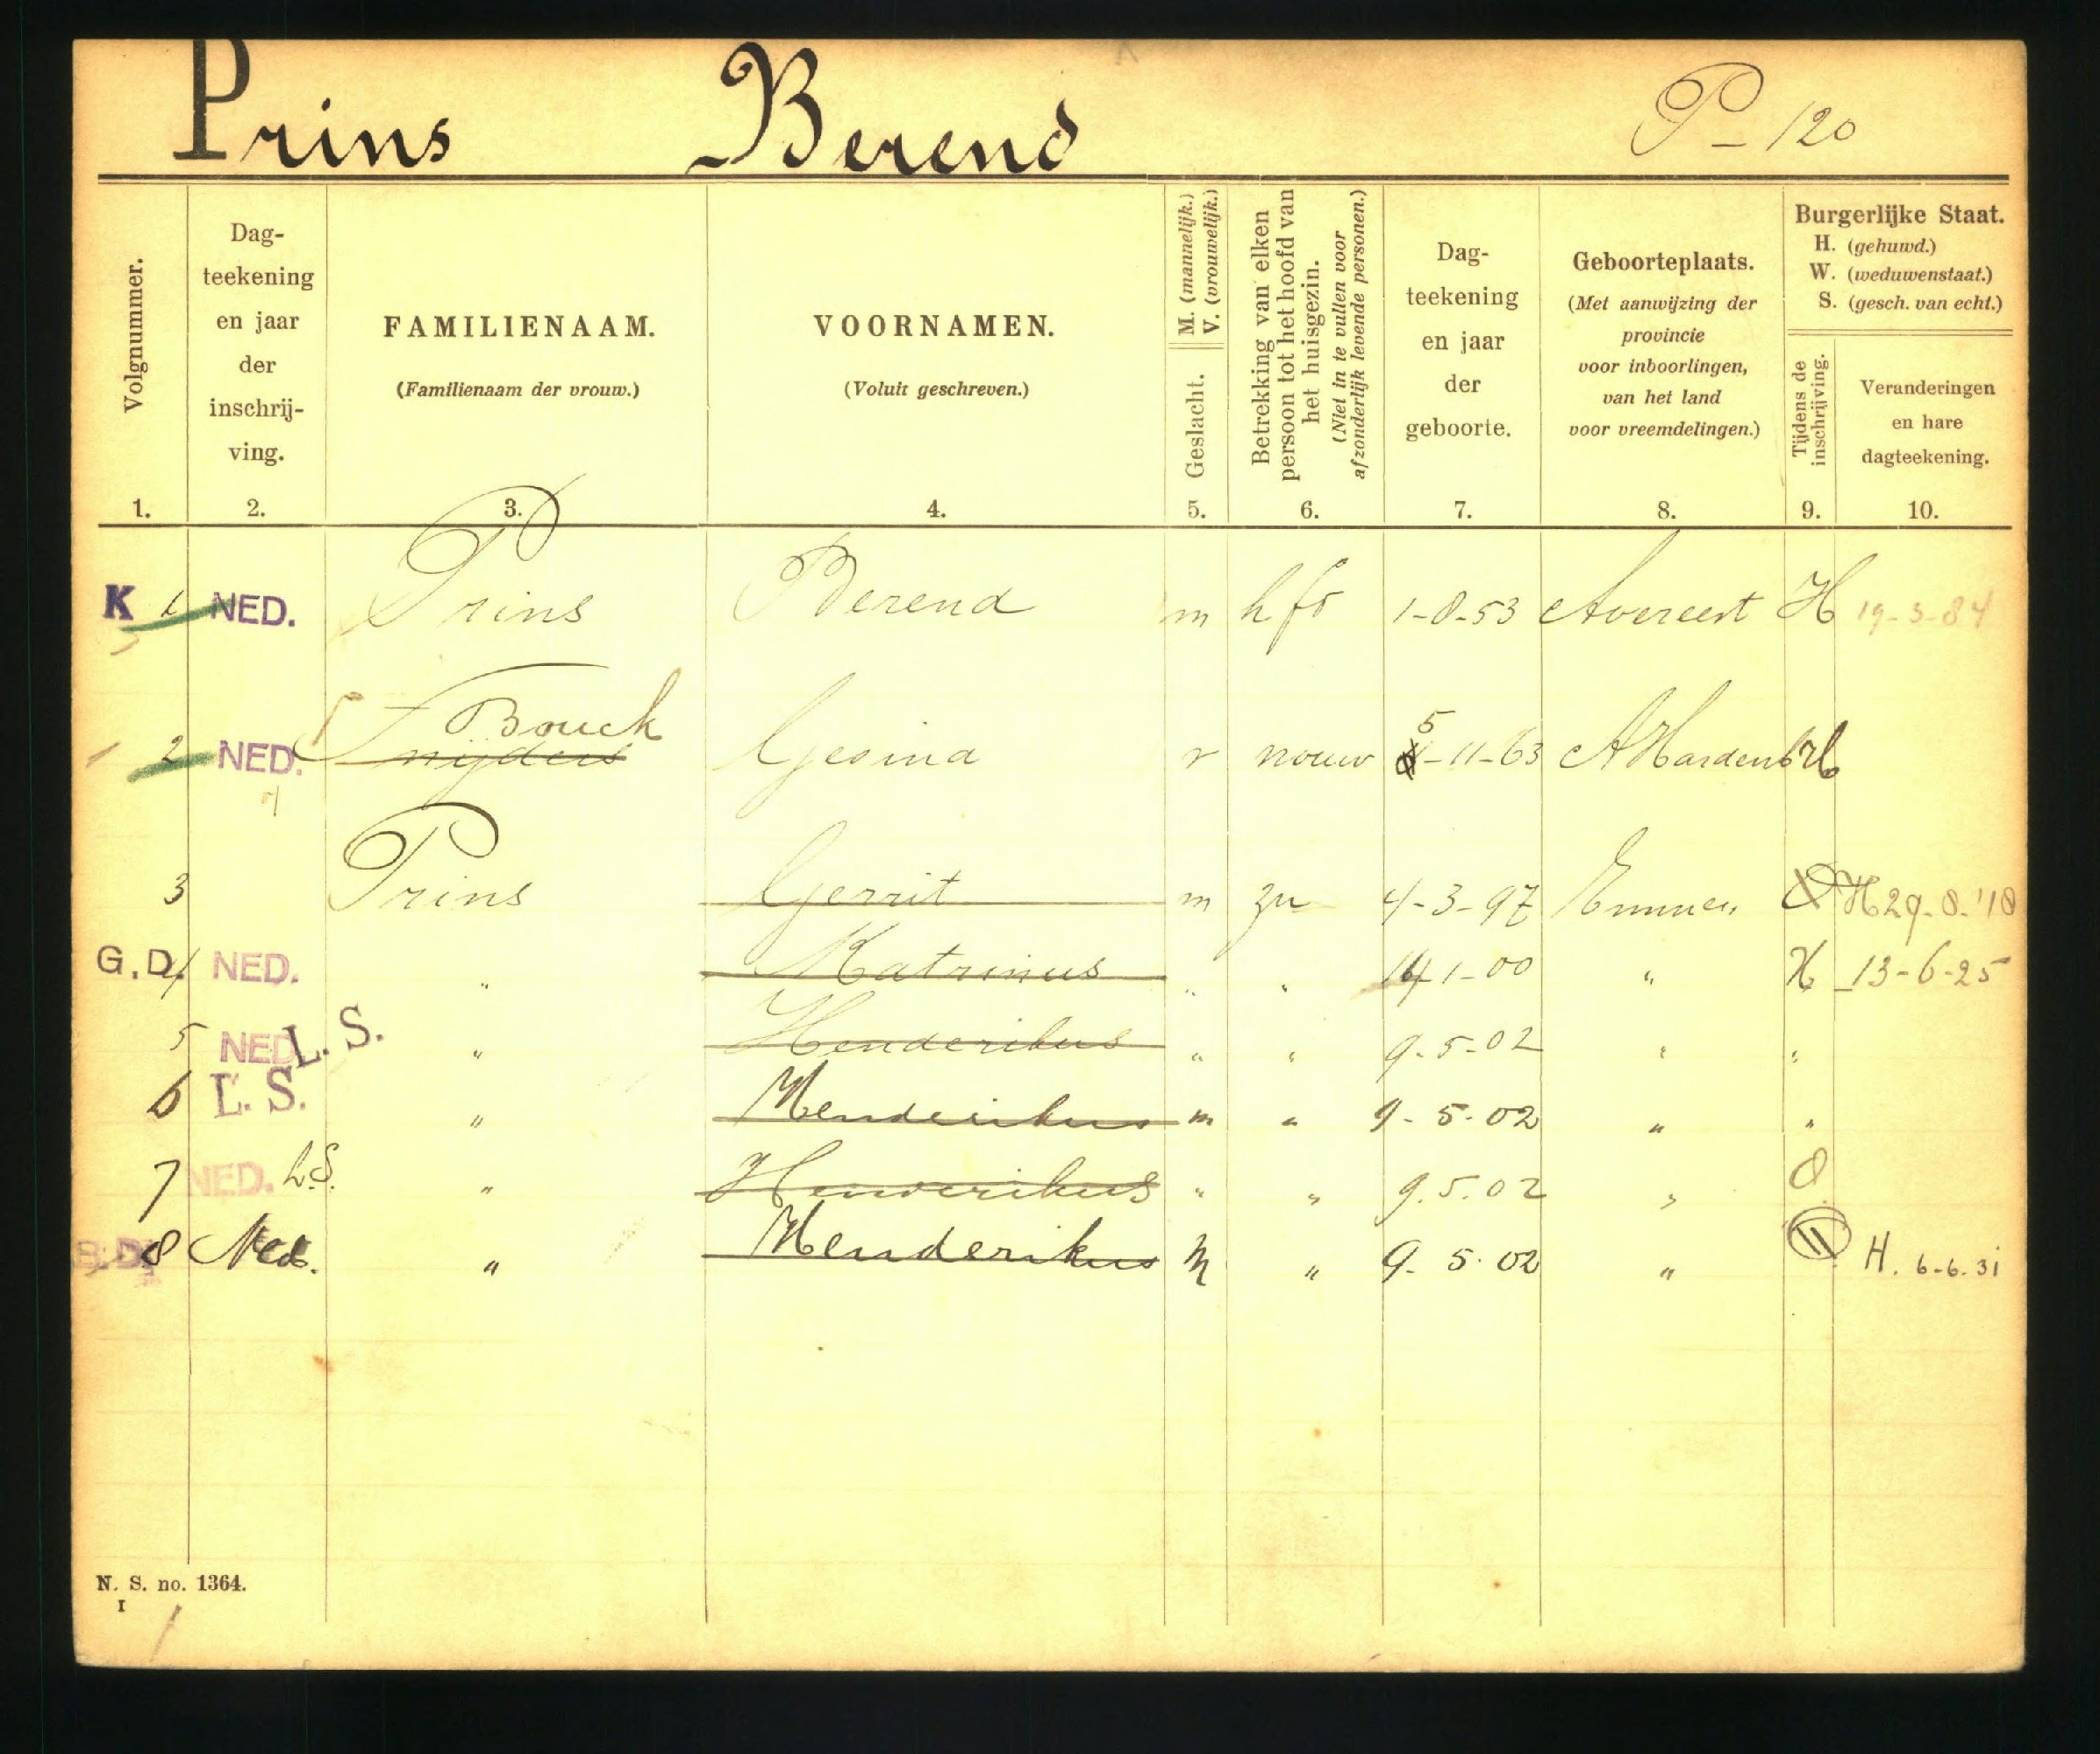 Prins Berend P - 120
Volgnummer.
1.
Dag-
teekening
en jaar
der
inschrij-
ving.
2.
FAMILIENAAM.
(Familienaam der vrouw.)
3.
VOORNAMEN.
(Voluit geschreven.)
4.
M. (mannelijk.)
V. (vrouwelijk.)
Geslacht.
5.
Betrekking van elken
persoon tot het hoofd van
het huisgezin.
(Niet in te vullen voor
afzonderlijk levende personen.)
6.
Dag-
teekening
en jaar
der
geboorte.
7.
Geboorteplaats.
(Met aanwijzing der
provincie
voor inboorlingen,
van het land
voor vreemdelingen.)
8.
Burgerlijke Staat.
H. (gehuwd.)
W. (weduwenstaat.)
S. (gesch. van echt.)
Tijdens de
inschrijving.
9.
Veranderingen
en hare
dagteekening.
10.
K 1 NED. Prins Berend m hfd 1-8-53 Avereest H 19-3-84
Bouck 5
2 NED. Snijders Gesina v vrouw -11-63 AHardenb H
3 Prins Gerrit m zn 4-3-97 Emmen H 29-8-'18
G.D. 4 NED. " Katrinus " " 14-1-00 " H 13-6-25
5 NED. L. S. " Henderikus " " 9-5-02 " "
6 L. S. " Henderikus m " 9-5-02 " "
7 NED. L.S. " Henderikus " " 9.5.02 "
8 Ned. " Henderikus m " 9-5-02 " H. 6-6-31
N. S. no. 1364.
I